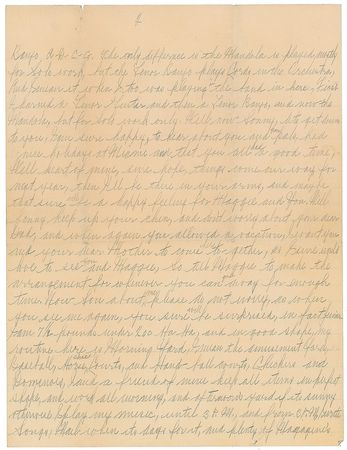 Banjo, A.D.C.G. The only difference is the Mandola is played, mostly
for Solo work, but the Tenor Banjo plays Cords, in the Orchestra,
and I mean it when I too was playing the band in here. First
I learned a Tenor Guitar and then a Tenor Banjo, and now the
Mandola, but for Solo work only. Well now Sonny, lets get down
to you, I am sure happy, to hear about you and had
nice holidays at Miami and that you all a good time,
Well heart of mine, sure hope, things come our way for
next year, then I'll be there in your arms, and maybe
that sure be a happy feeling for Maggie and you. Well
Sonny keep up your chin, and don't worry about your dear
Dad, and when again you allowed a vacation, I want you
and your dear Mother to come together, as I sure would
love to see you and Maggie, So tell Maggie to make the
arrangement for whenever you can away for enough
time. Now Son about please do not worry, so when
you see me again, you sure be surprised, in fact
I am 7½ pounds under 200 Ha Ha, and in good shape, my
routine here is Morning Yard, I mean the amusement Yard,
Baseball, Horse courts, and hand-ball courts, Checkers and
Dominos, and a friend of mine keep all items in first
shape, and work all morning, and afternoons yard if its sunny
otherwise I play my music, until P.M, and from P.M, write
Songs, thats when its days for it, and plenty of Magazines